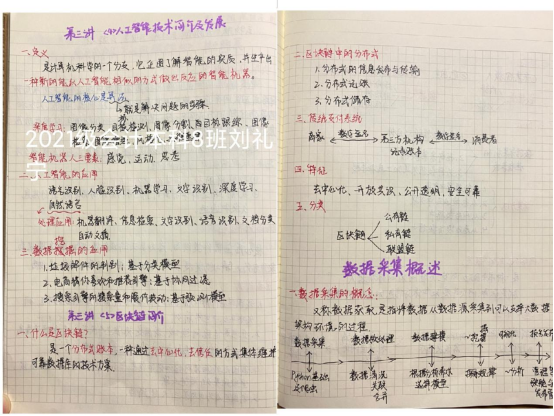 第三讲 (4)人工智能技术简介及发展
一、定义
是计算机科学的一个分支,它企图了解智能的实质,并生产出
一种新的能以人工智能相似的方式做出反应的智能机器。
人工智能的核心是算法
就是解决问题的步骤
深度学习:图像分类、目标检测、图像分割、目标跟踪、图像
2021级会计本科8班刘礼宁
智能机器人三要素:感觉、运动、思考
二、人工智能的应用
语音识别、人脸识别、机器学习、文字识别、深度学习、
自然语言
处理应用:机器翻译、信息检索、文字识别、语音识别、文档分类
自动文摘
三、数据挖掘的应用
1.垃圾邮件的判别:基于分类模型
2.电商猜你喜欢和推荐引擎:基于协同过滤
第三讲 (5)区块链简介
一、什么是区块链?
是一个分布式账本,一种通过去中心化、去信任的方式集体维护
可靠数据库的技术方案
二、区块链中的分布式
1.分布式的信息发布与传输
2.分布式记账
3.分布式储存
三、
商家
数字签名
第三方机构
数字签名
消费者
四、特征
去中心化、开放共识、公开透明、安全可靠
五、分类
区块链
公有链
私有链
联盟链
数据采集概述
一、数据采集的概念:
又称数据获取,是指将数据从数据源采集到可以支持大数据
架构环境的过程
数据采集
数据预处理
数据建模
Python基础
数据清洗